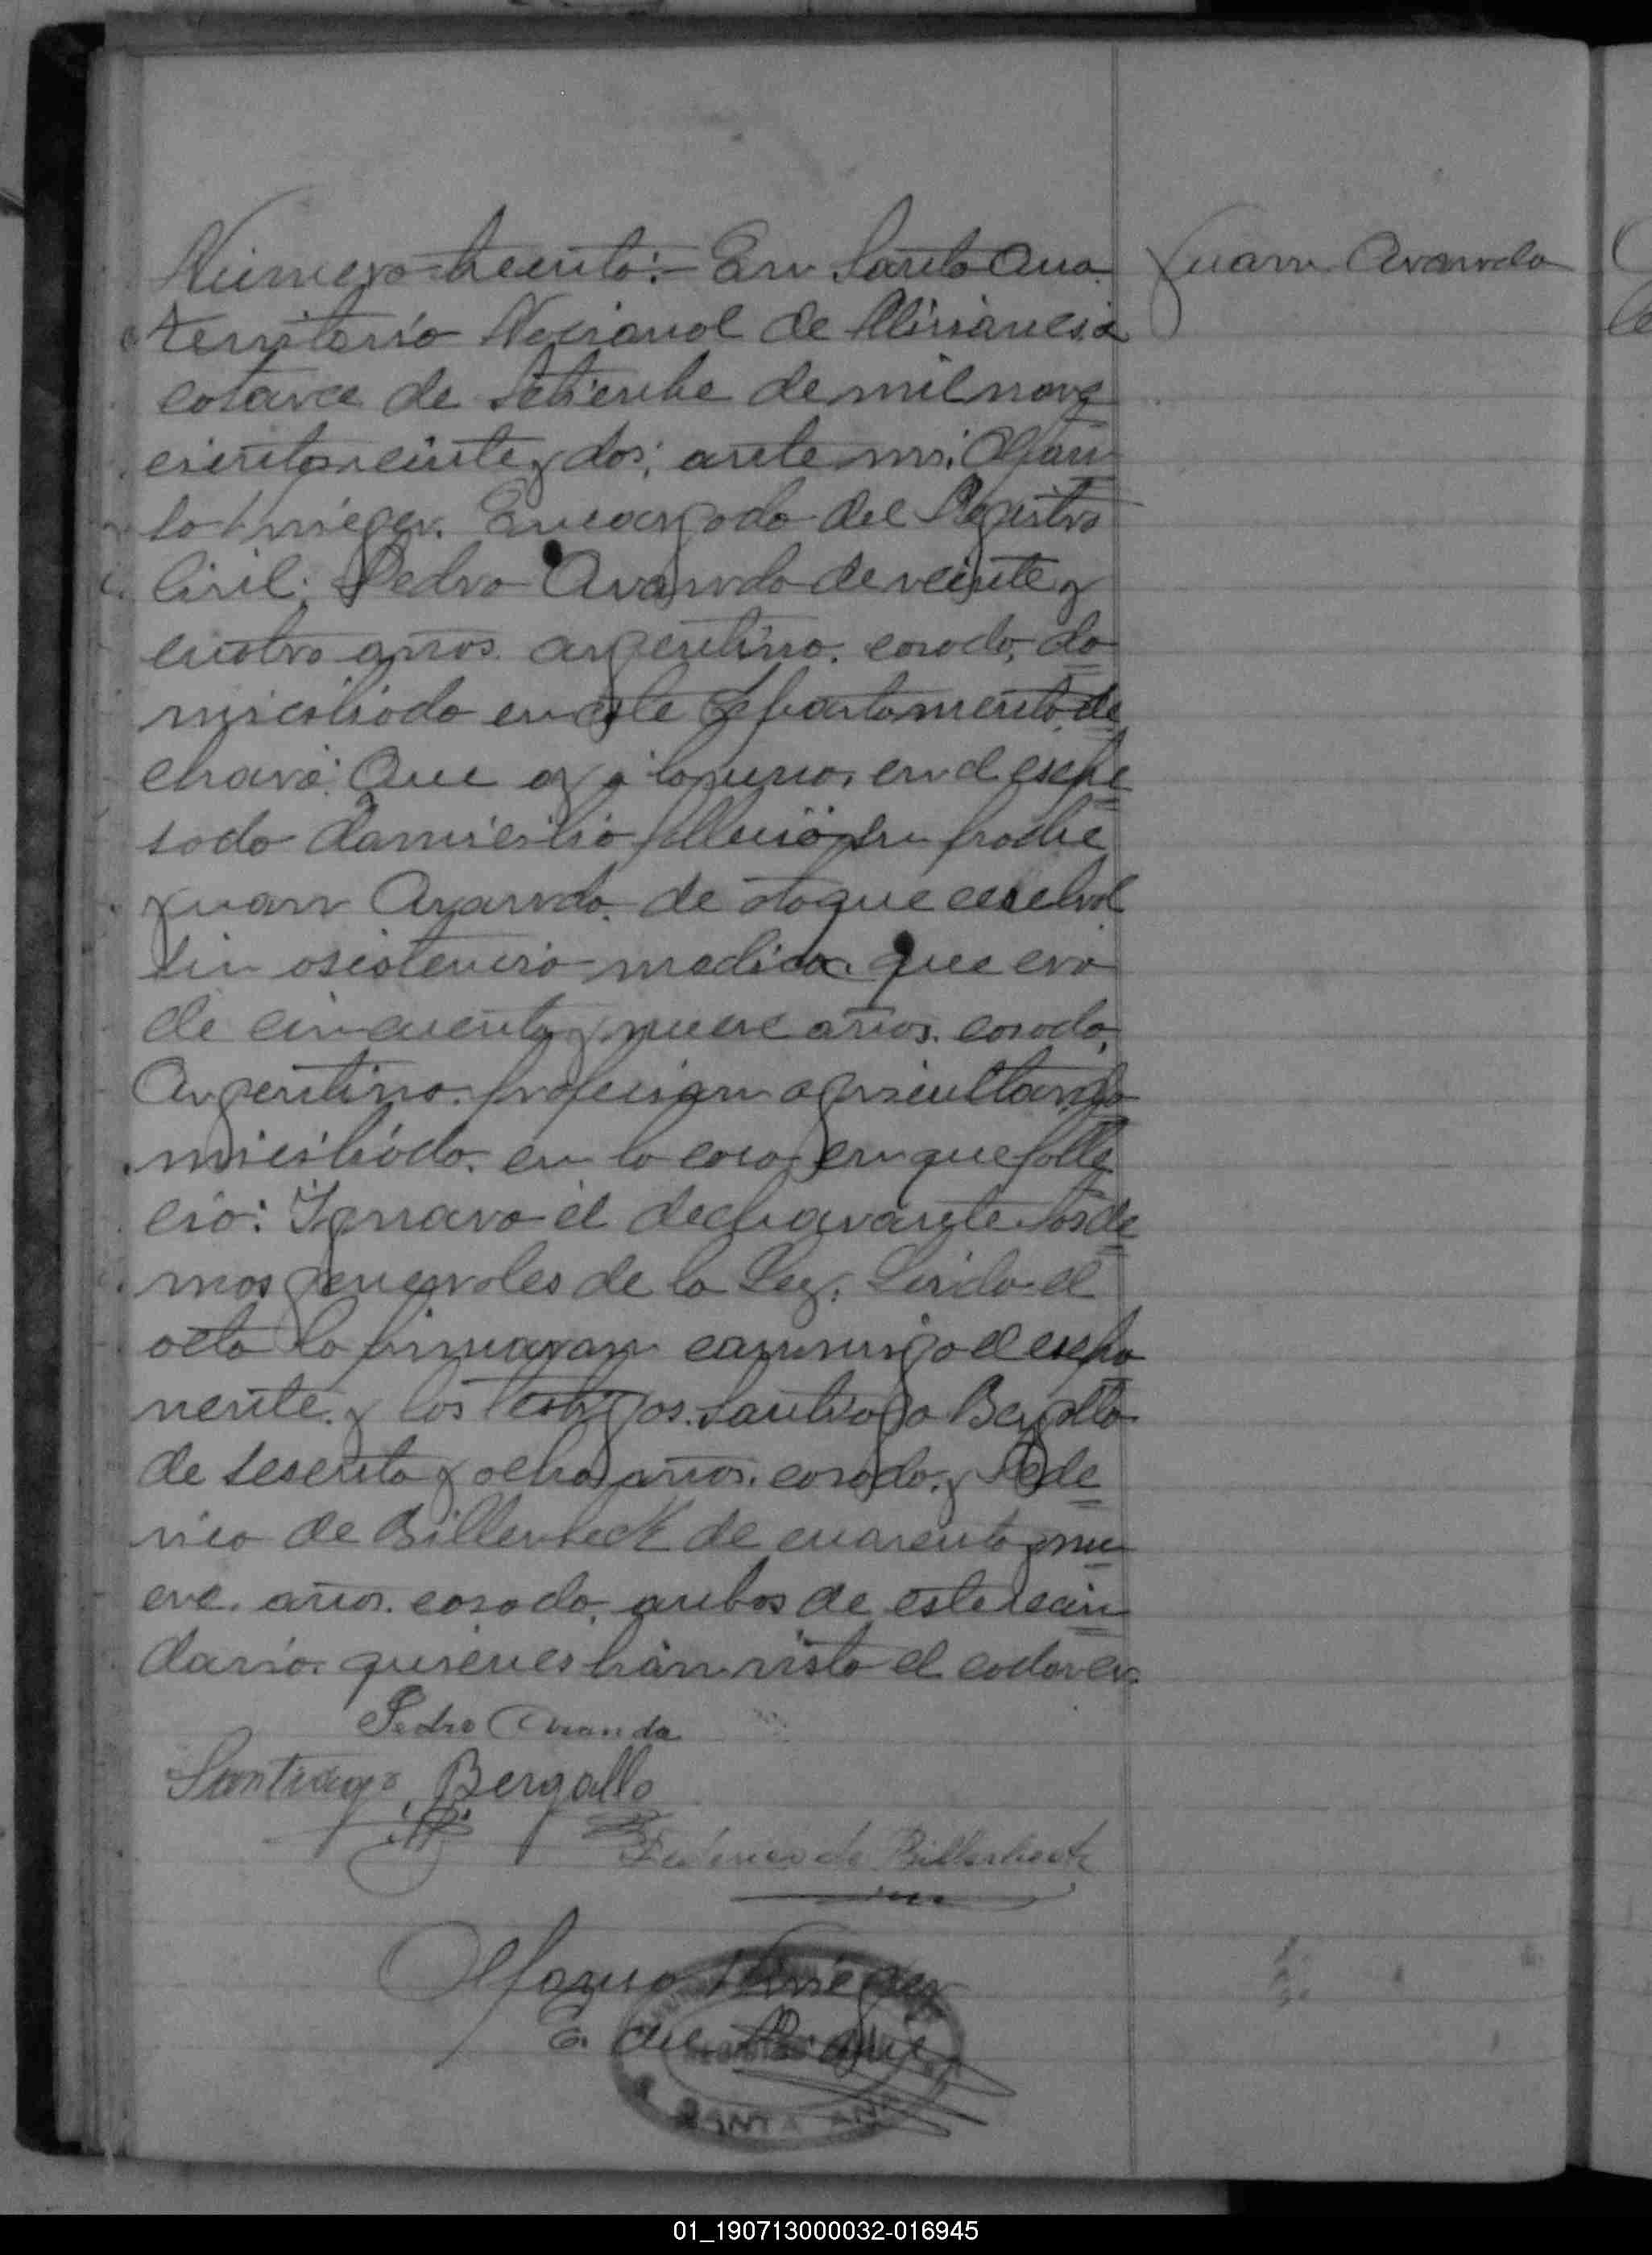 Número treinta: En Santa Ana
Juan Aranda
territorio Nacional de Misiones á
catorce de Setiembre de mil nove
cientos veinte y dos; ante mi, Alfan
so Krieger. Encargado del Registro
Civil; Pedro Aranda de veinte y
cuatro años. argentino. casado, do
miciliado en este departamento de
claró: Que en el espre
sado domicilio falleció su padre
Juan Aranda. de ataque cerebral
sin asistencia medica. que era
de cincuenta y nueve años. casado,
Argentino. profecion agricultor, do
miciliado. en la casa en que falle
ció: Ignara el declarante los de
mas generales de la Ley. Leida el
acta la firmaran conmigo el espo
nente. y los testigos. Santiago Bergallo
de sesenta y ocho años. casado. y Fede
rico de Billerbeck de cuarenta y nu
eve. años. casado. ambos de este vecin
dario. quienes han visto el cadaver.
Pedro Aranda
Santiago Bergallo
Federico de Billerbeck
Alfonso Krieger
E. del
SANTA ANA
01_190713000032-016945